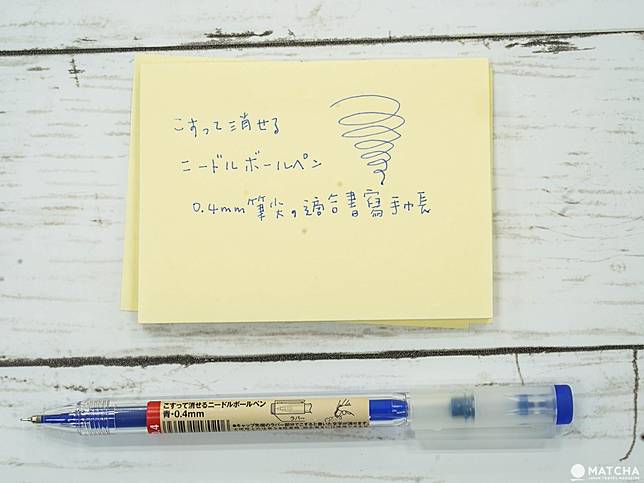 こすって消せる
ニードルボールペン
0.4mm筆尖。適合書寫手帳
こすって消せるニードルボールペン
青・0.4mm
ラバー
MATCHA
JAPAN TRAVEL MAGAZINE